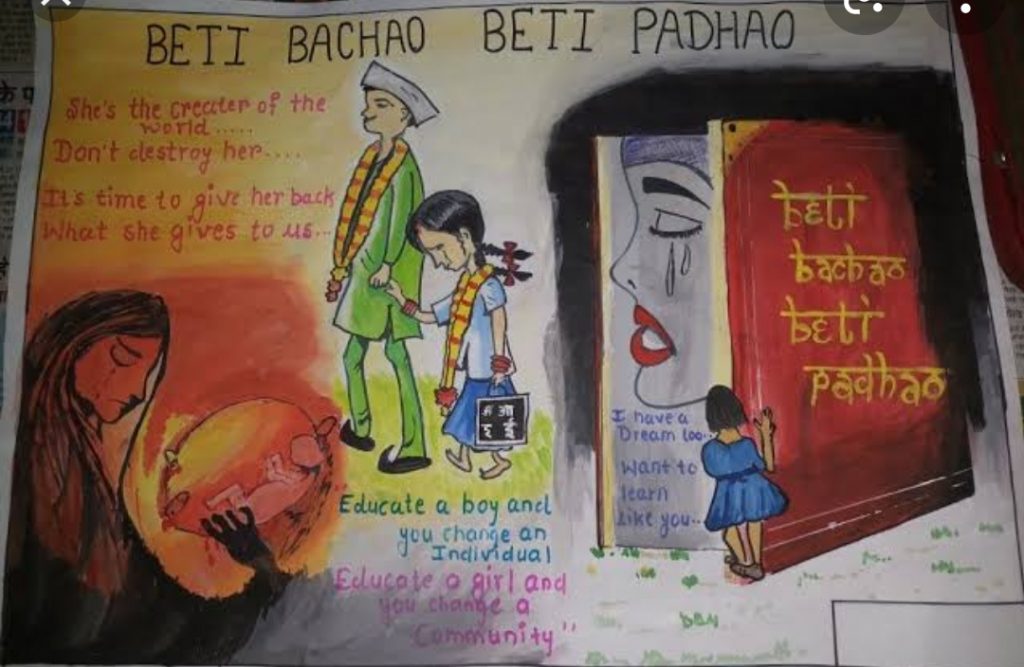 BETI BACHAO BETI PADHAO
She's the creater of the
world.....
Don't destroy her....
It's time to give her back
What she gives to us...
अ आ
इ ई
Educate a boy and
you change an
Individual
Educate a girl and
you change a
Community"
beti
bachao
beti
padhao
I have a
Dream too..
want to
learn
like you..